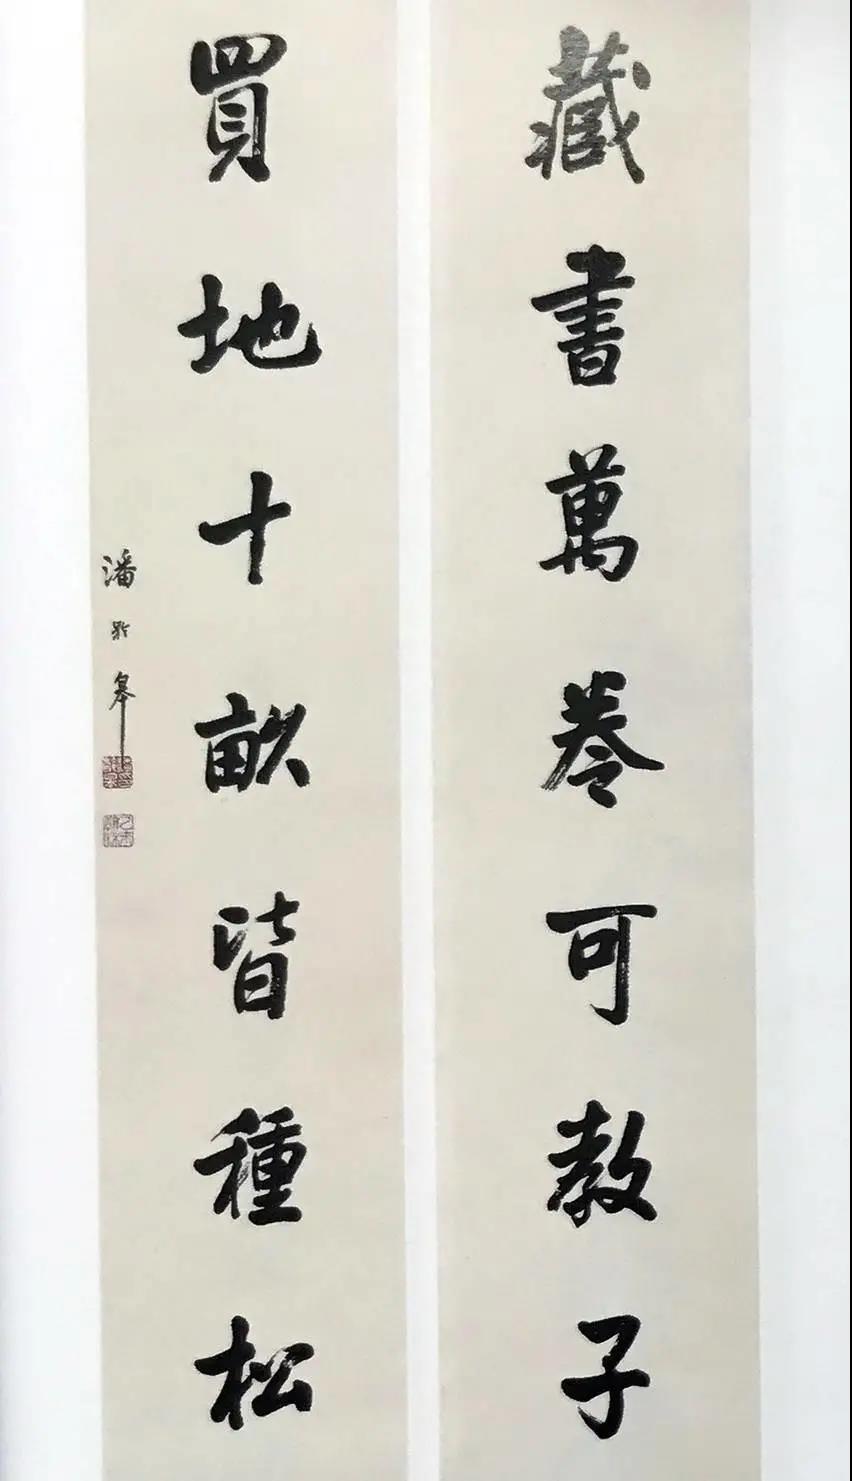 藏書萬卷可教子
買地十畝皆種松
潘齡皋